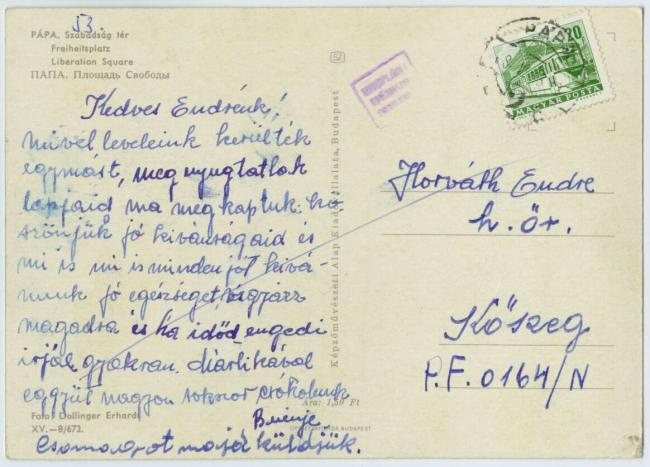 53.
PÁPA. Szabadság tér
Freiheitsplatz
Liberation Square
ПАПА. Площадь Свободы
Kedves Endrénk!
mivel leveleink kerülték
egymást, meg nyugtatlak
lapjaid ma meg kaptuk. kö
szönjük jó kivánságaid és
mi is mi is minden jót kivá-
nunk jó egészséget, vigyázz
magadra és ha időd engedi
irjál gyakran.
eggyüt nagyon sokszor csókolunk
Csomagot majd küldjük.
Ára: 1,50 Ft
Foto: Dollinger Erhardt
XV.—8/672.
Képzőművészeti Alap Kiadóvállalata, Budapest
PÁPA
MAGYAR POSTA
Horváth Endre
h. őr.
Kőszeg
P.F. 0164/N